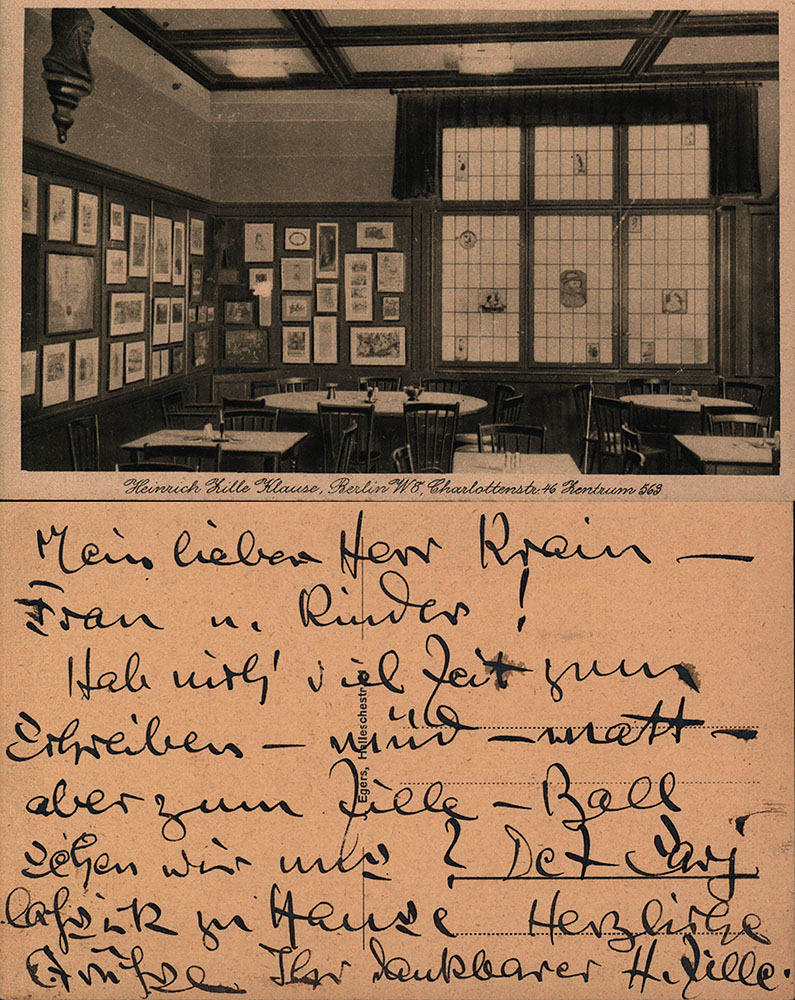 Heinrich Zille Klause, Berlin W 8, Charlottenstr. 46 Zentrum 563
Mein lieber Herr Krain —
Frau u. Kinder!
Hab nich' viel Zeit zum
Schreiben — müd — matt —
aber zum Zille-Ball
sehen wir uns? Det
zu Hause Herzliche
Grüße Ihr dankbarer H. Zille.
Egers, Halleschestr